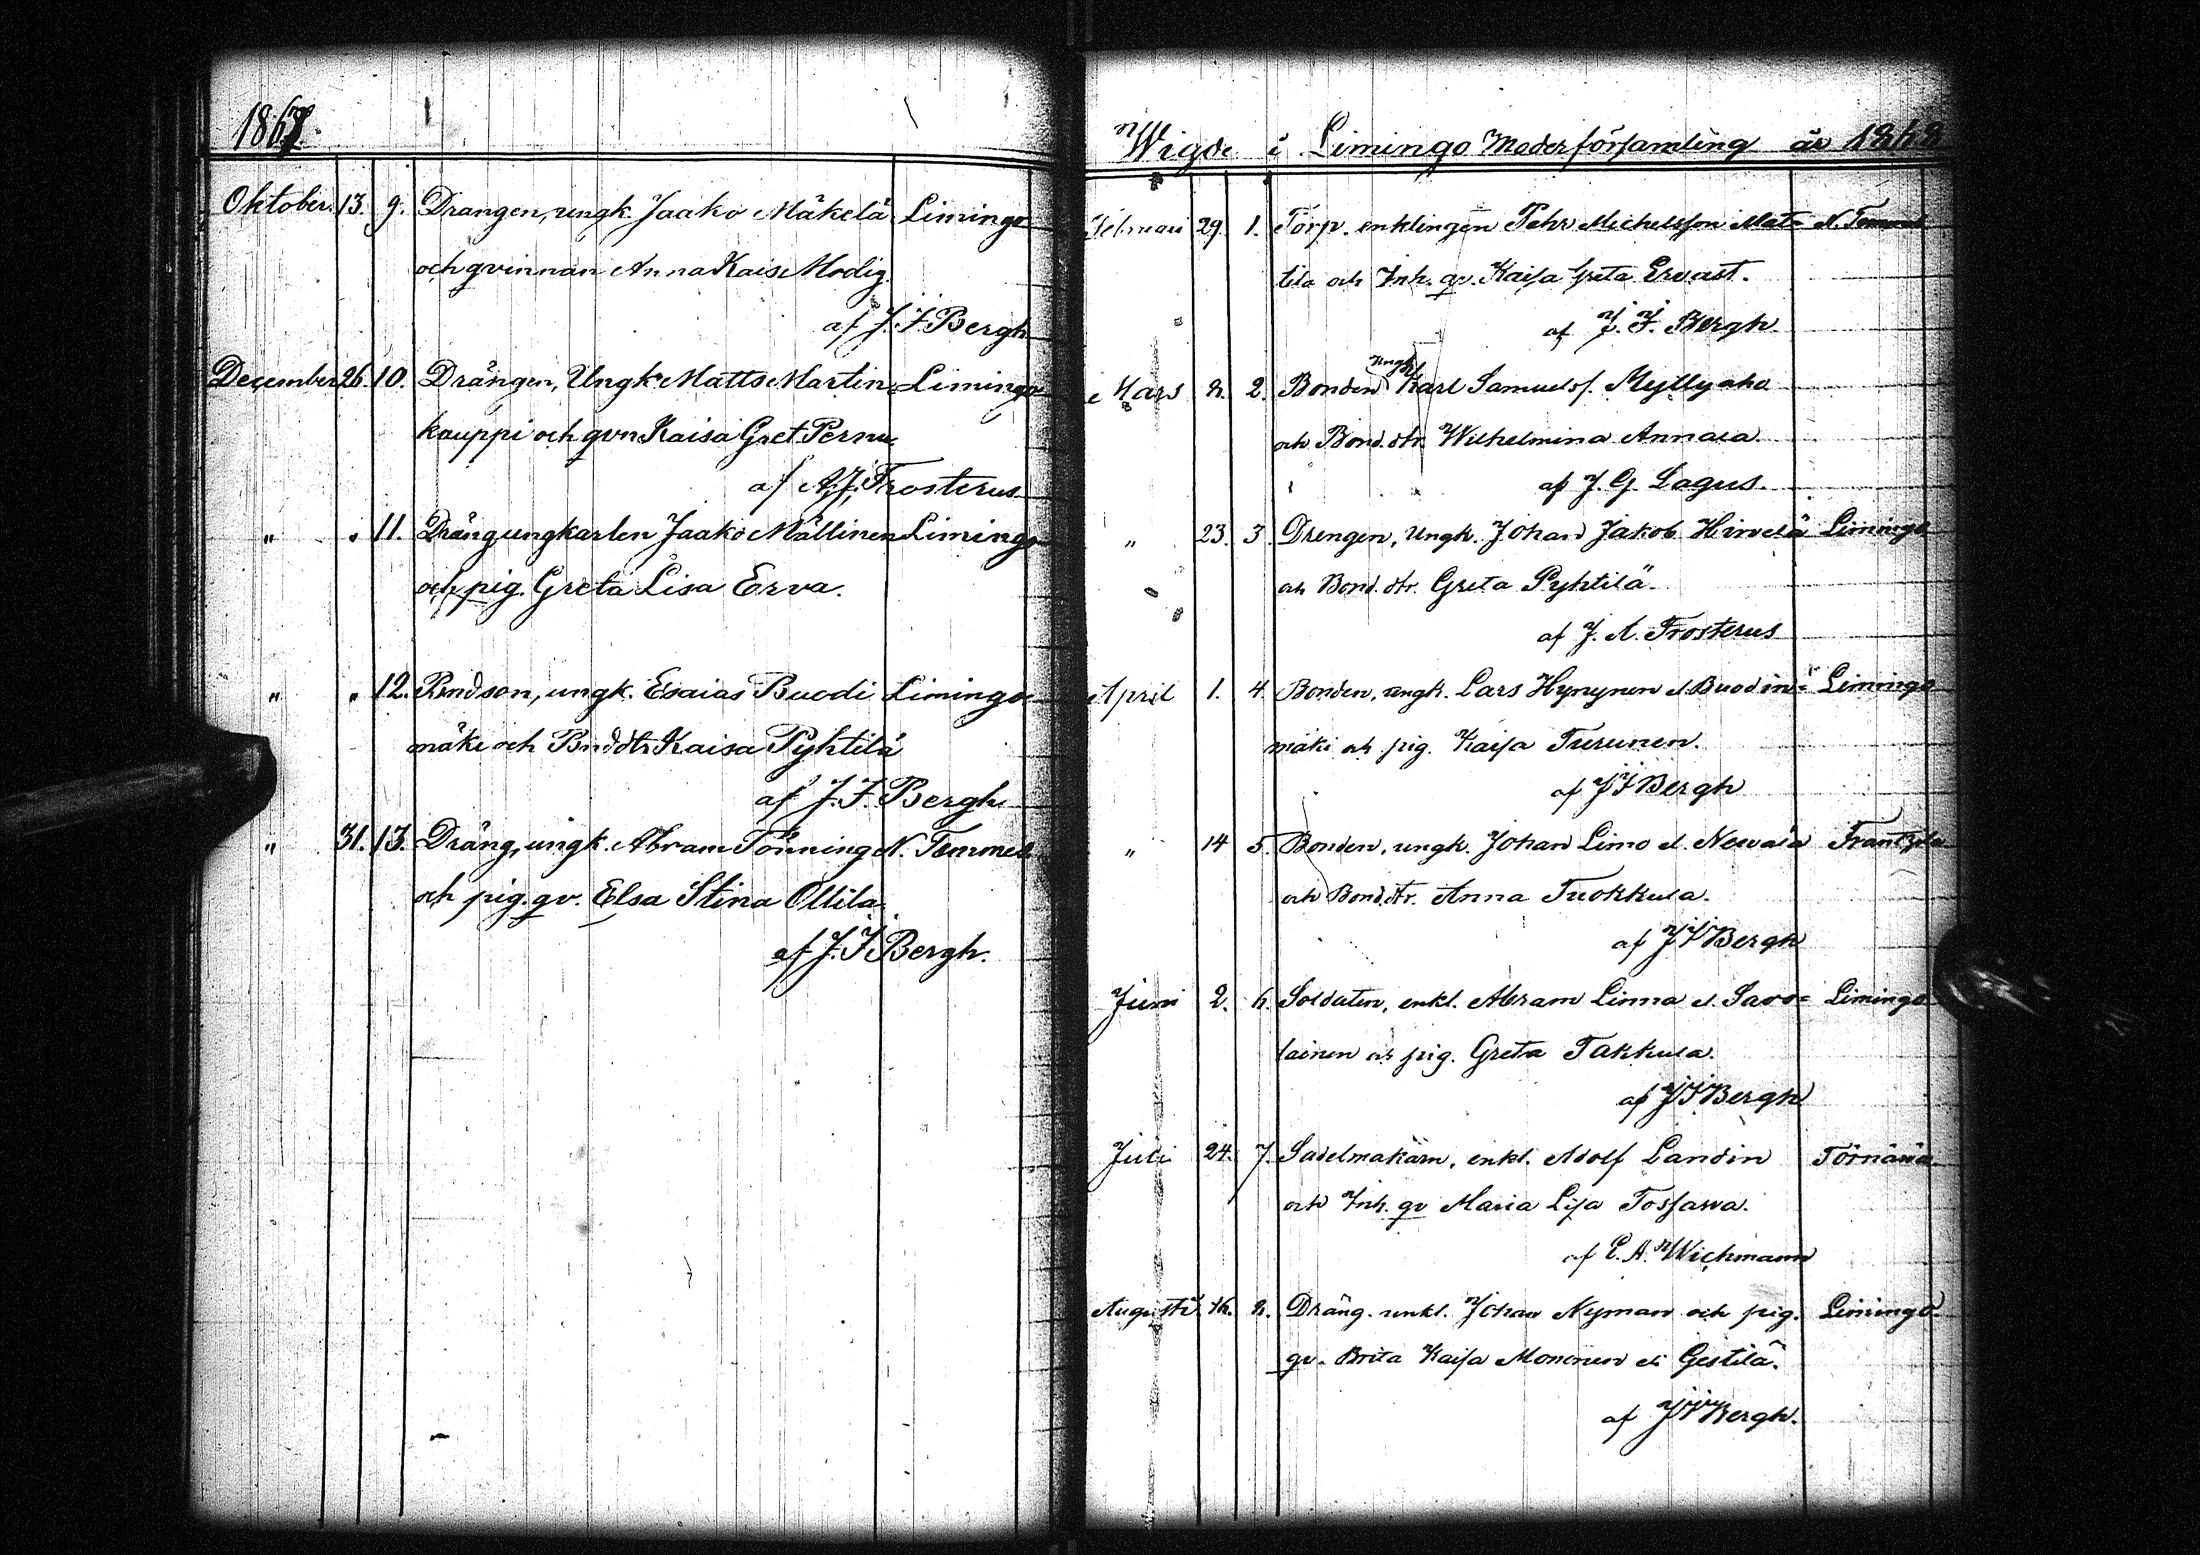 1867.
Oktober. 13. 9. Drangen, ungk. Jaako Mäkelä Limingo
och qvinnan Anna Kaisa Modig.
af J. F. Bergh
December 26. 10. Drängen, Ungk. Matts Martin= Limingo
kauppi och qvn Kaisa Gret Pernu
af A. J. Frosterus
" " 11. Drängungkarlen Jaako Mällinen Limingo
och pig. Greta Lisa Erva.
" " 12. Bndson, ungk. Esaias Buodi Limingo
mäki och Bnddtr Kaisa Pyhtilä
af J. F. Bergh
" 31. 13. Dräng, ungk. Abram Tönning N. Temmes
och pig. qv. Elsa Stina Ollila
af J. F. Bergh.
Wigde i Limingo Moderförsamling år 1868
29. 1. Torp. enklingen Pehr Michelsson Mat= N. Temmes
tila och Inh. qv. Kaisa Greta Ervast.
af J. F. Bergh
Mars 8. 2. Bonden Ungk. Karl Samuelss. Myllyaho
och Bond. dtr. Wilhelmina Annala
af J. G. Lagus.
" 23. 3. Drengen, Ungk. Johan Jakob Hirvelä Limingo
och Bond. dtr. Greta Pyhtilä.
af J. A. Frosterus
April 1. 4. Bonden, ungk. Lars Hynynen el. Buodin= Limingo
mäki och pig. Kaisa Turunen.
af J F Bergh
" 14 5. Bonden, ungk. Johan Limo el. Newala Frantzila
och Bond. dtr. Anna Tuokkula.
af J F Bergh
Juni 2. 6. Soldaten, enkl. Abram Linna el. Savo= Limingo
lainen och pig. Greta Takkula.
af J F Bergh
Juli 24. 7. Sadelmakarn, enkl. Adolf Landin Törnävä
och Inh. qv Maria Lisa Tossava.
af E. A. Wichmann
Augusti 16. 8. Dräng. enkl. Johan Nyman och pig. Limingo
qv. Brita Kaisa Mononen el. Gestilä.
af J F Bergh.